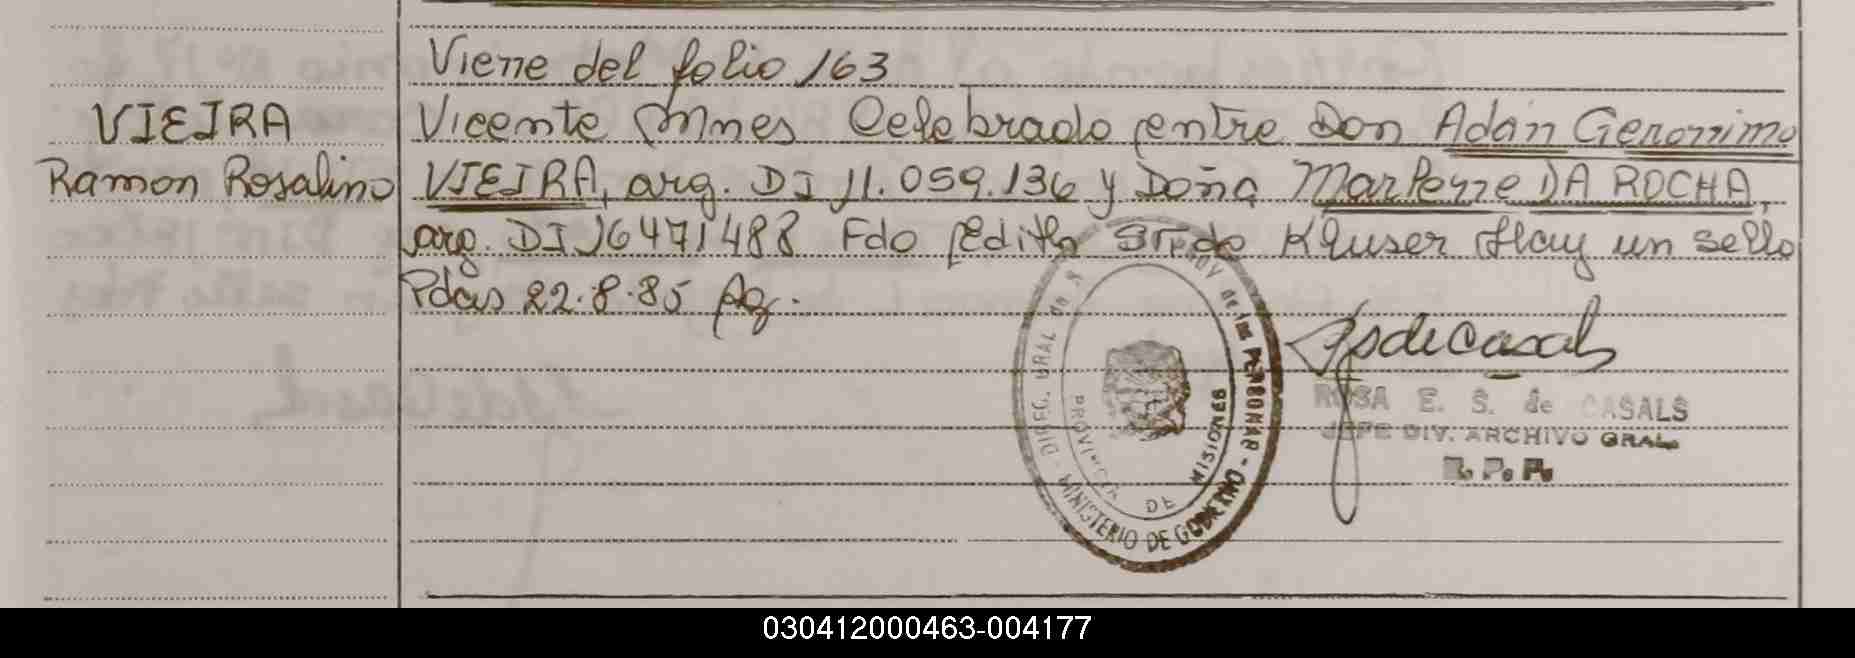 Viene del folio 163
VIEIRA
Ramon Rosalino
Vicente Mnes Celebrado entre Don Adán Geronimo
VIEIRA, arg. DI 11.059.136 y Doña Marlene DA ROCHA,
arg. DI 16471488 Fdo Edith de Kluser Hay un sello
Pdas 22.8.85
ROSA E. S. de CASALS
JEFE DIV. ARCHIVO GRAL.
R. P. P.
DIREC. GRAL de las PERSONAS
PROVINCIA DE MISIONES
MINISTERIO DE GOBIERNO
030412000463-004177